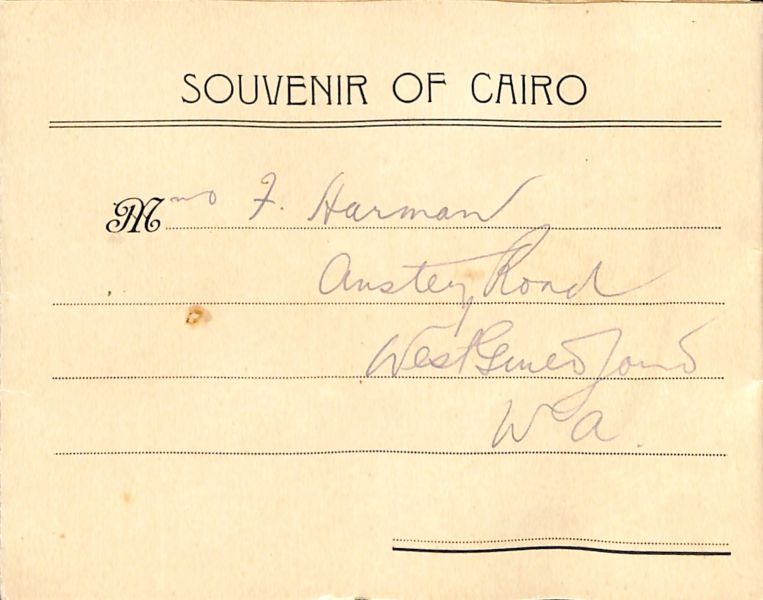 SOUVENIR OF CAIRO
Mrs F. Harman
Anstey Road
West Guildford
W A.